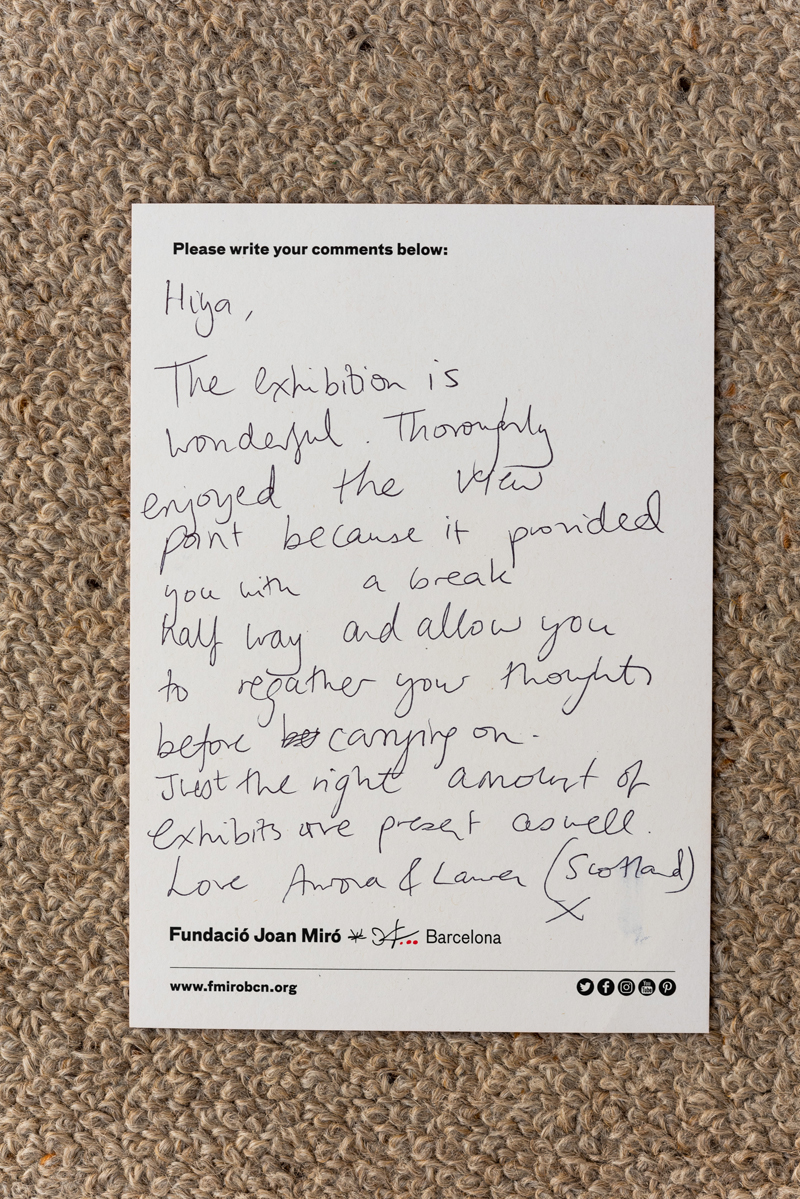 Please write your comments below:
Hiya,
The exhibition is
wonderful. Thoroughly
enjoyed the view
point because it provided
you with a break
half way and allow you
to regather your thoughts
before carrying on.
Just the right amount of
exhibits are present aswell.
Love Aurora & Lauren (Scotland)
X
Fundació Joan Miró Barcelona
www.fmirobcn.org